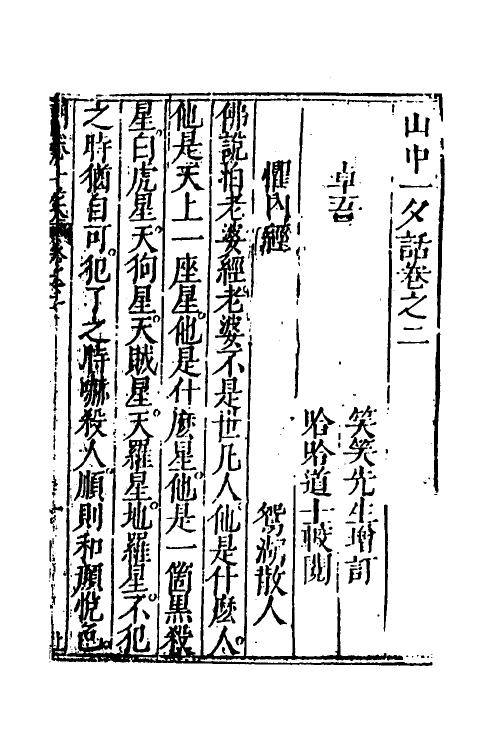 山中一夕話卷之二
卓吾
笑笑先生增訂
哈哈道士較閱
懼內經
鴛湖散人
佛說怕老婆經。老婆不是世凡人。他是什麽人。
他是天上一座星。他是什麽星。他是一箇黑殺
星。白虎星。天狗星。天賊星。天羅星。地羅星。不犯
之時猶自可。犯了之時嚇殺人。順則和顏悅色。